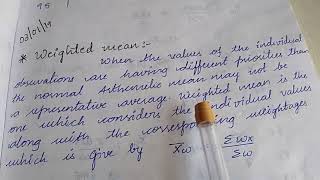 95
03/01/19
* Weighted mean:-
When the values of the individual
observations are having different priorities then
the normal Arthematic mean may not be
a representative average. Weighted mean is the
one which considers the individual values
along with the corresponding weightages
which is give by X̄ω = Σωx / Σω